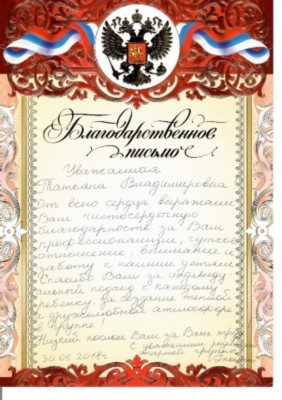 Благодарственное
письмо
Уважаемая
Татьяна Владимировна
От всего сердца выражаем
Вам чистосердечную
благодарность за Ваш
профессионализм, чуткое
отношение, внимание и
заботу к нашим детям.
Спасибо Вам за индивиду
альный подход к каждому
ребенку, за создание теплой
и дружелюбной атмосферы
в группе.
Низкий поклон Вам за Ваш труд!
С уважением родители
30.05.2018г. старшей группы